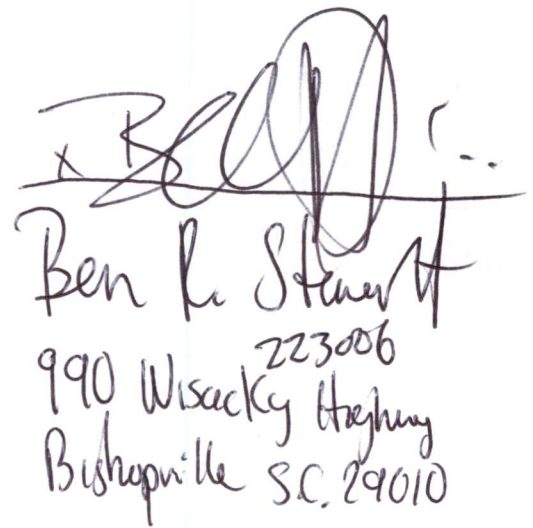 x
Ben R. Stewart
223006
990 Wisacky Highway
Bishopville S.C. 29010